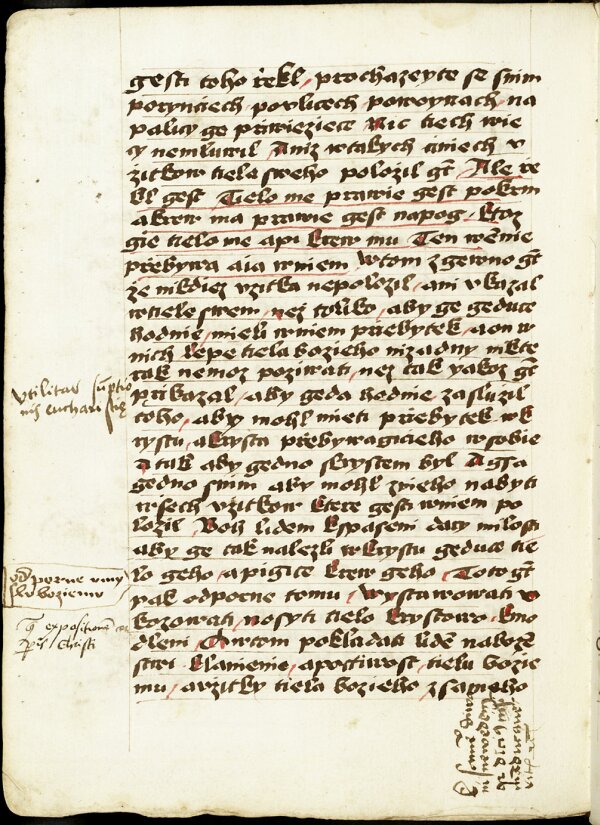 gesti toho řekl, prochazeyte se snim
porynciech povlicech powoynach, na
palicy ge przwiezięce Nic tiech wie
cy nemluwil Aniz wtakych wiech v
zitkow tiela sweho polozil gt Ale rze
kl gest Tielo me prawie gest pokrm
a krew ma prawie gest napog, Ktoz
gie tielo me a pi krew mu Ten we mnie
přebywa a ia wniem Wtom zgewno gt
že nikdiez vzitka nepolozil, ani vkazal
wtiele swem, než toliko, aby ge geduce
hodnie, mieli wniem přiebytek, a on w
nich lepe tiela bozieho nizadny nikte
rak nemoz pozirati, nez tak yakoz gt
přikazal, aby geda hodnie zasluzil
toho, aby mohl mieti přiebytek wk
rystu, a krysta přebywagicieho wsobie
a tak aby gedno skrystem byl A gsa
gedno snim aby mohl znieho nabyti
wsech vzitkow ktere gesti wniem po
lozil Boh lidem kspaseni daty milosti
aby ge tak nalezli wkrystu geduce tie
lo geho, a pigice krew geho, Toto gt
pak odporne tomu, Wystawowati v
kozowati, nosyti tielo krystowo, kmo
dleni Awtom pokladati lidem naboze
stwi klanienie, a poctiwost, tielu bozie
mu, a vzitky tiela bozieho zsameho
vtilitas suptio
nis eucharistię
odporne vmy
slu boziemu
expositione
Christi